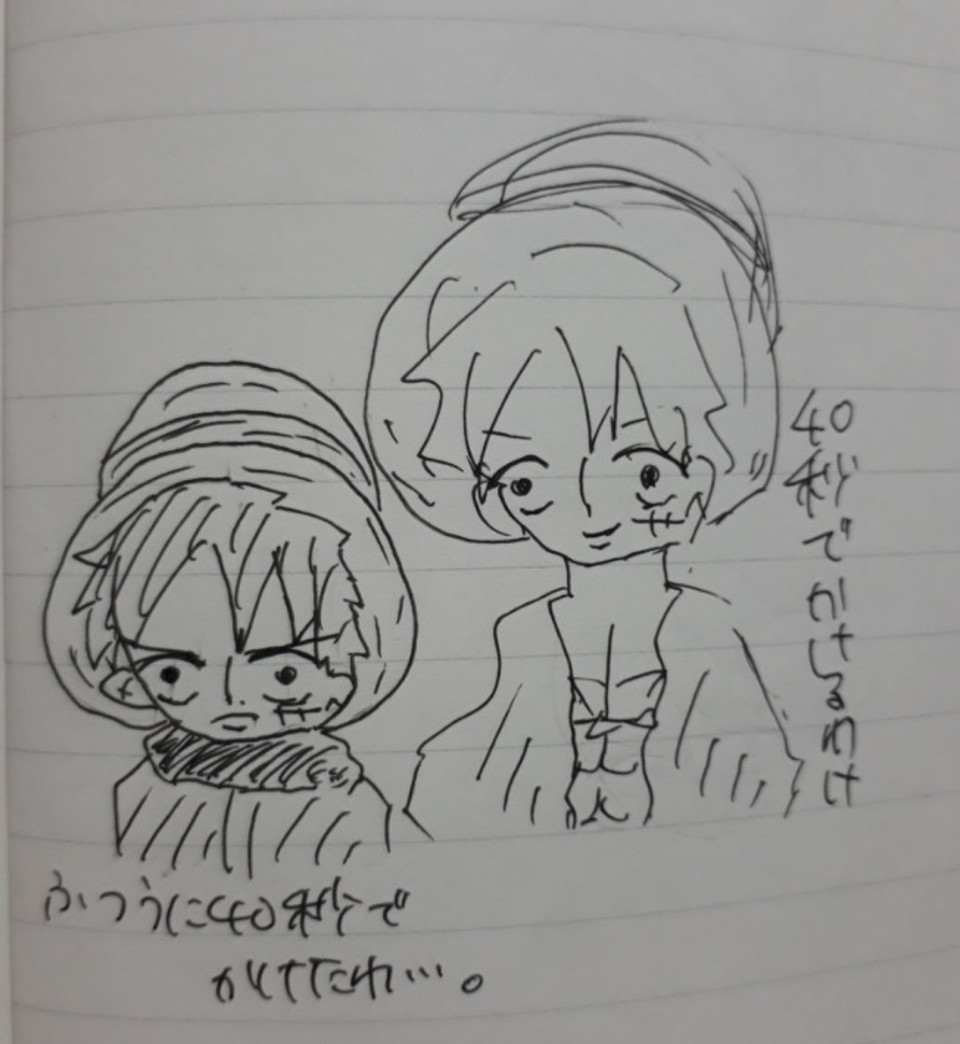 40秒でかけるわけ
ふつうに40秒で
かけたわ…。